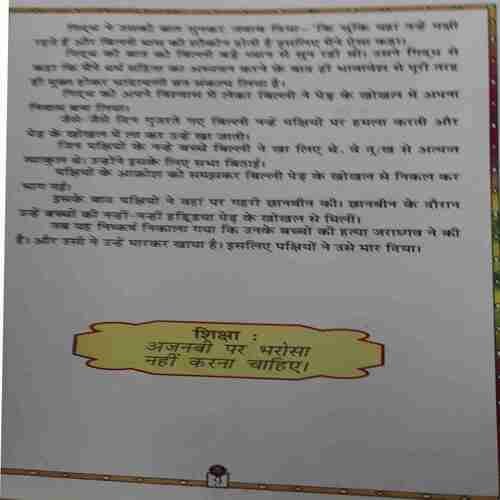 गिद्ध ने उसकी बात सुनकर जवाब दिया- 'कि चूंकि यहां नन्हें पक्षी
रहते हैं और बिल्ली मांस की शौकीन होती है इसलिए मैंने ऐसा कहा।
गिद्ध की बात को बिल्ली बड़े ध्यान से सुन रही थी। उसने गिद्ध से
कहा कि मैंने धर्म संहिता का अध्ययन करने के बाद ही मांसाहार से पूरी तरह
ही मुक्त होकर का संकल्प लिया है।
गिद्ध को अपने विश्वास में लेकर बिल्ली ने पेड़ के खोखल में अपना
निवास बना लिया।
जैसे-जैसे दिन गुजरते गए बिल्ली नन्हें पक्षियों पर हमला करती और
पेड़ के खोखल में ला कर उन्हें खा जाती।
जिन पक्षियों के नन्हें बच्चे बिल्ली ने खा लिए थे, वे दुःख से अत्यन्त
व्याकुल थे। उन्होंने इसके लिए सभा बिठाई।
पक्षियों के आक्रोश को समझकर बिल्ली पेड़ के खोखल से निकल कर
भाग गई।
इसके बाद पक्षियों ने वहां पर गहरी छानबीन की। छानबीन के दौरान
उन्हें बच्चों की नन्हीं-नन्हीं हड्डियां पेड़ के खोखल से मिलीं।
तब यह निष्कर्ष निकाला गया कि उनके बच्चों की हत्या जरादगव ने की
है। और उसी ने उन्हें मारकर खाया है। इसलिए पक्षियों ने उसे मार दिया।
शिक्षा :
अजनबी पर भरोसा
नहीं करना चाहिए।